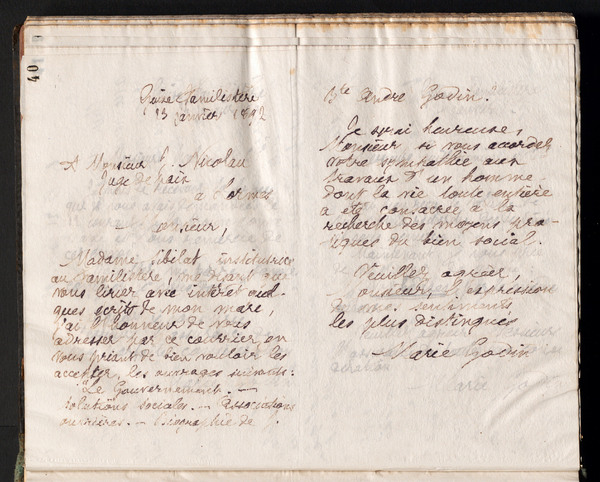 40
Guise Familistère
13 janvier 1892
A Monsieur E. Nicolau
Juge de paix
à Cormes
Monsieur,
Madame Sibilat institutrice
au Familistère, me disant que
vous liriez avec intérêt quel-
ques écrits de mon mari,
j'ai l'honneur de vous
adresser par ce courrier, en
vous priant de bien vouloir les
accepter, les ouvrages suivants:
Le Gouvernement. —
Solutions sociales. — Associations
ouvrières. — Biographie de
Bte André Godin.
Je serai heureuse,
Monsieur si vous accordez
votre sympathie aux
travaux d'un homme
dont la vie toute entière
a été consacrée à la
recherche des moyens pra-
tiques du bien social.
Veuillez agréer,
Monsieur, l'expression
de mes sentiments
les plus distingués
Marie Godin